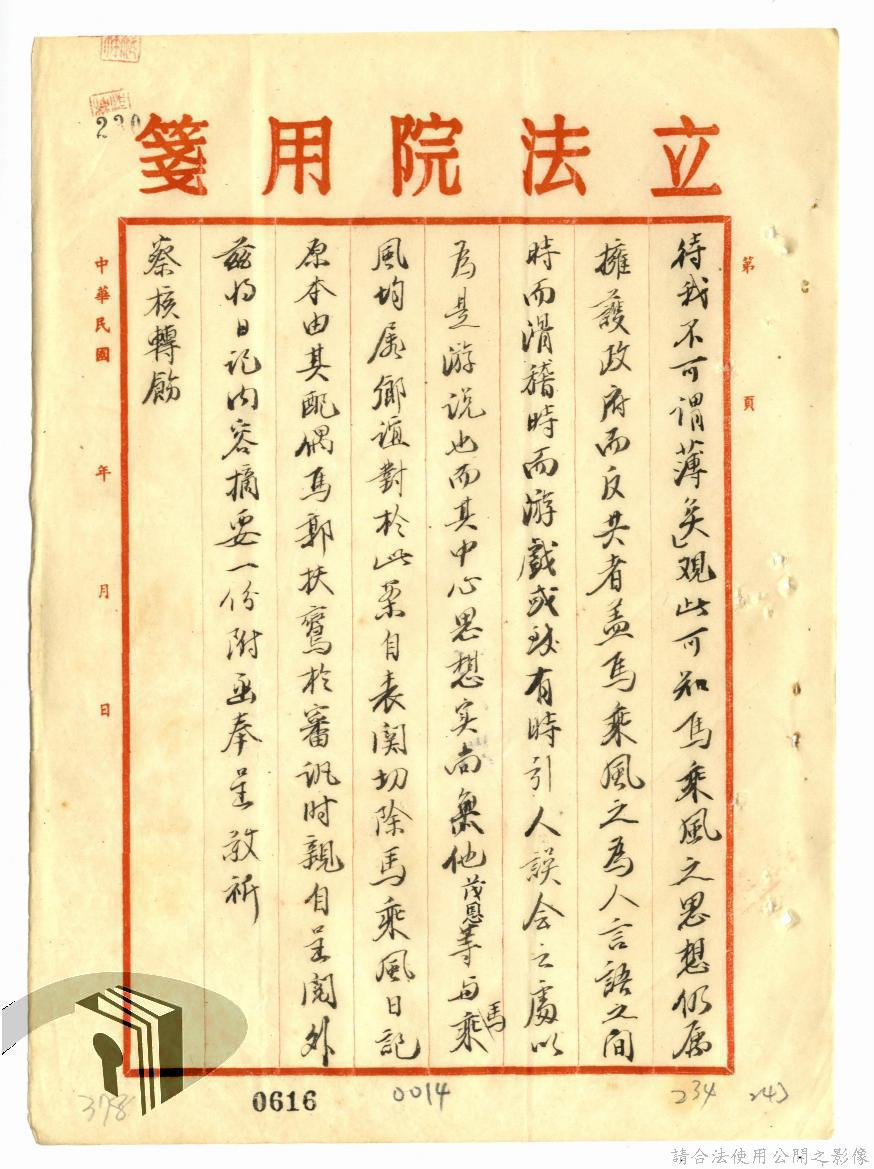 立法院用箋
第　頁
待我不可謂薄矣」观此可知馬乘風之思想仍属
擁護政府而反共者盖馬乘風之為人言語之间
時而滑稽時而游戲或致有時引人誤会之處以
為是游说也而其中心思想实尚無他茂恩等与馬乘
風均属鄉誼對於此案自表関切除馬乘風日記
原本由其配偶馬郭扶鸞於審訊时親自呈閱外
茲将日记内容摘要一份附函奉呈敬祈
察核轉飭
中華民國　年　月　日
230
378
0616
0014
234
243
請合法使用公開之影像